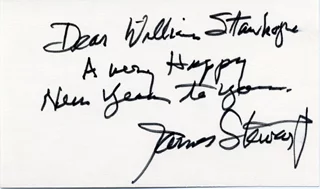 Dear William
A very Happy
New Year to you.
James Stewart